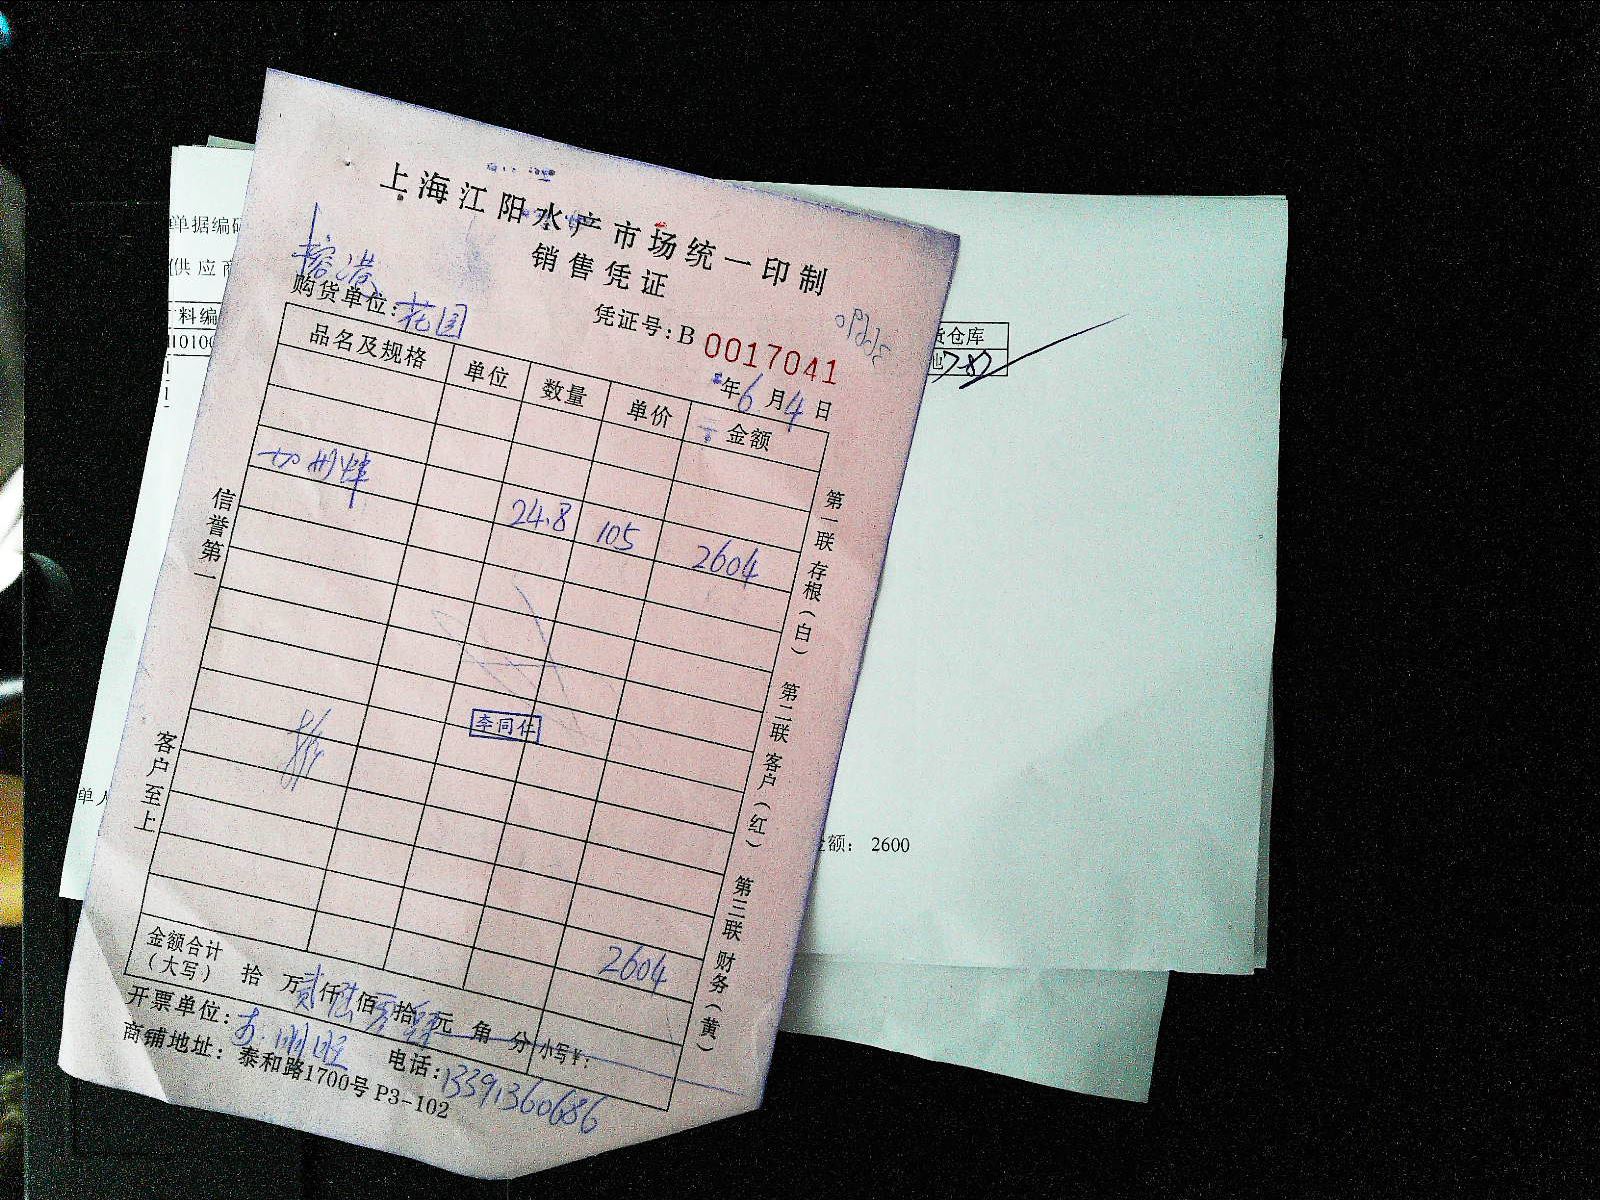 上海江阳水产市场统一印制
销售凭证
购货单位：花园
凭证号：B 0017041
年6月4日
品名及规格 单位 数量 单价 金额
24.8 105 2604
李同仁
2604
金额合计（大写） 拾 万贰仟陆佰零拾肆元 角 分 小写￥：
开票单位：
电话：13391360686
商铺地址：泰和路1700号 P3-102
信誉第一
客户至上
第一联 存根（白） 第二联 客户（红） 第三联 财务（黄）
单据编
供应商
料编
货仓库
单人
额： 2600